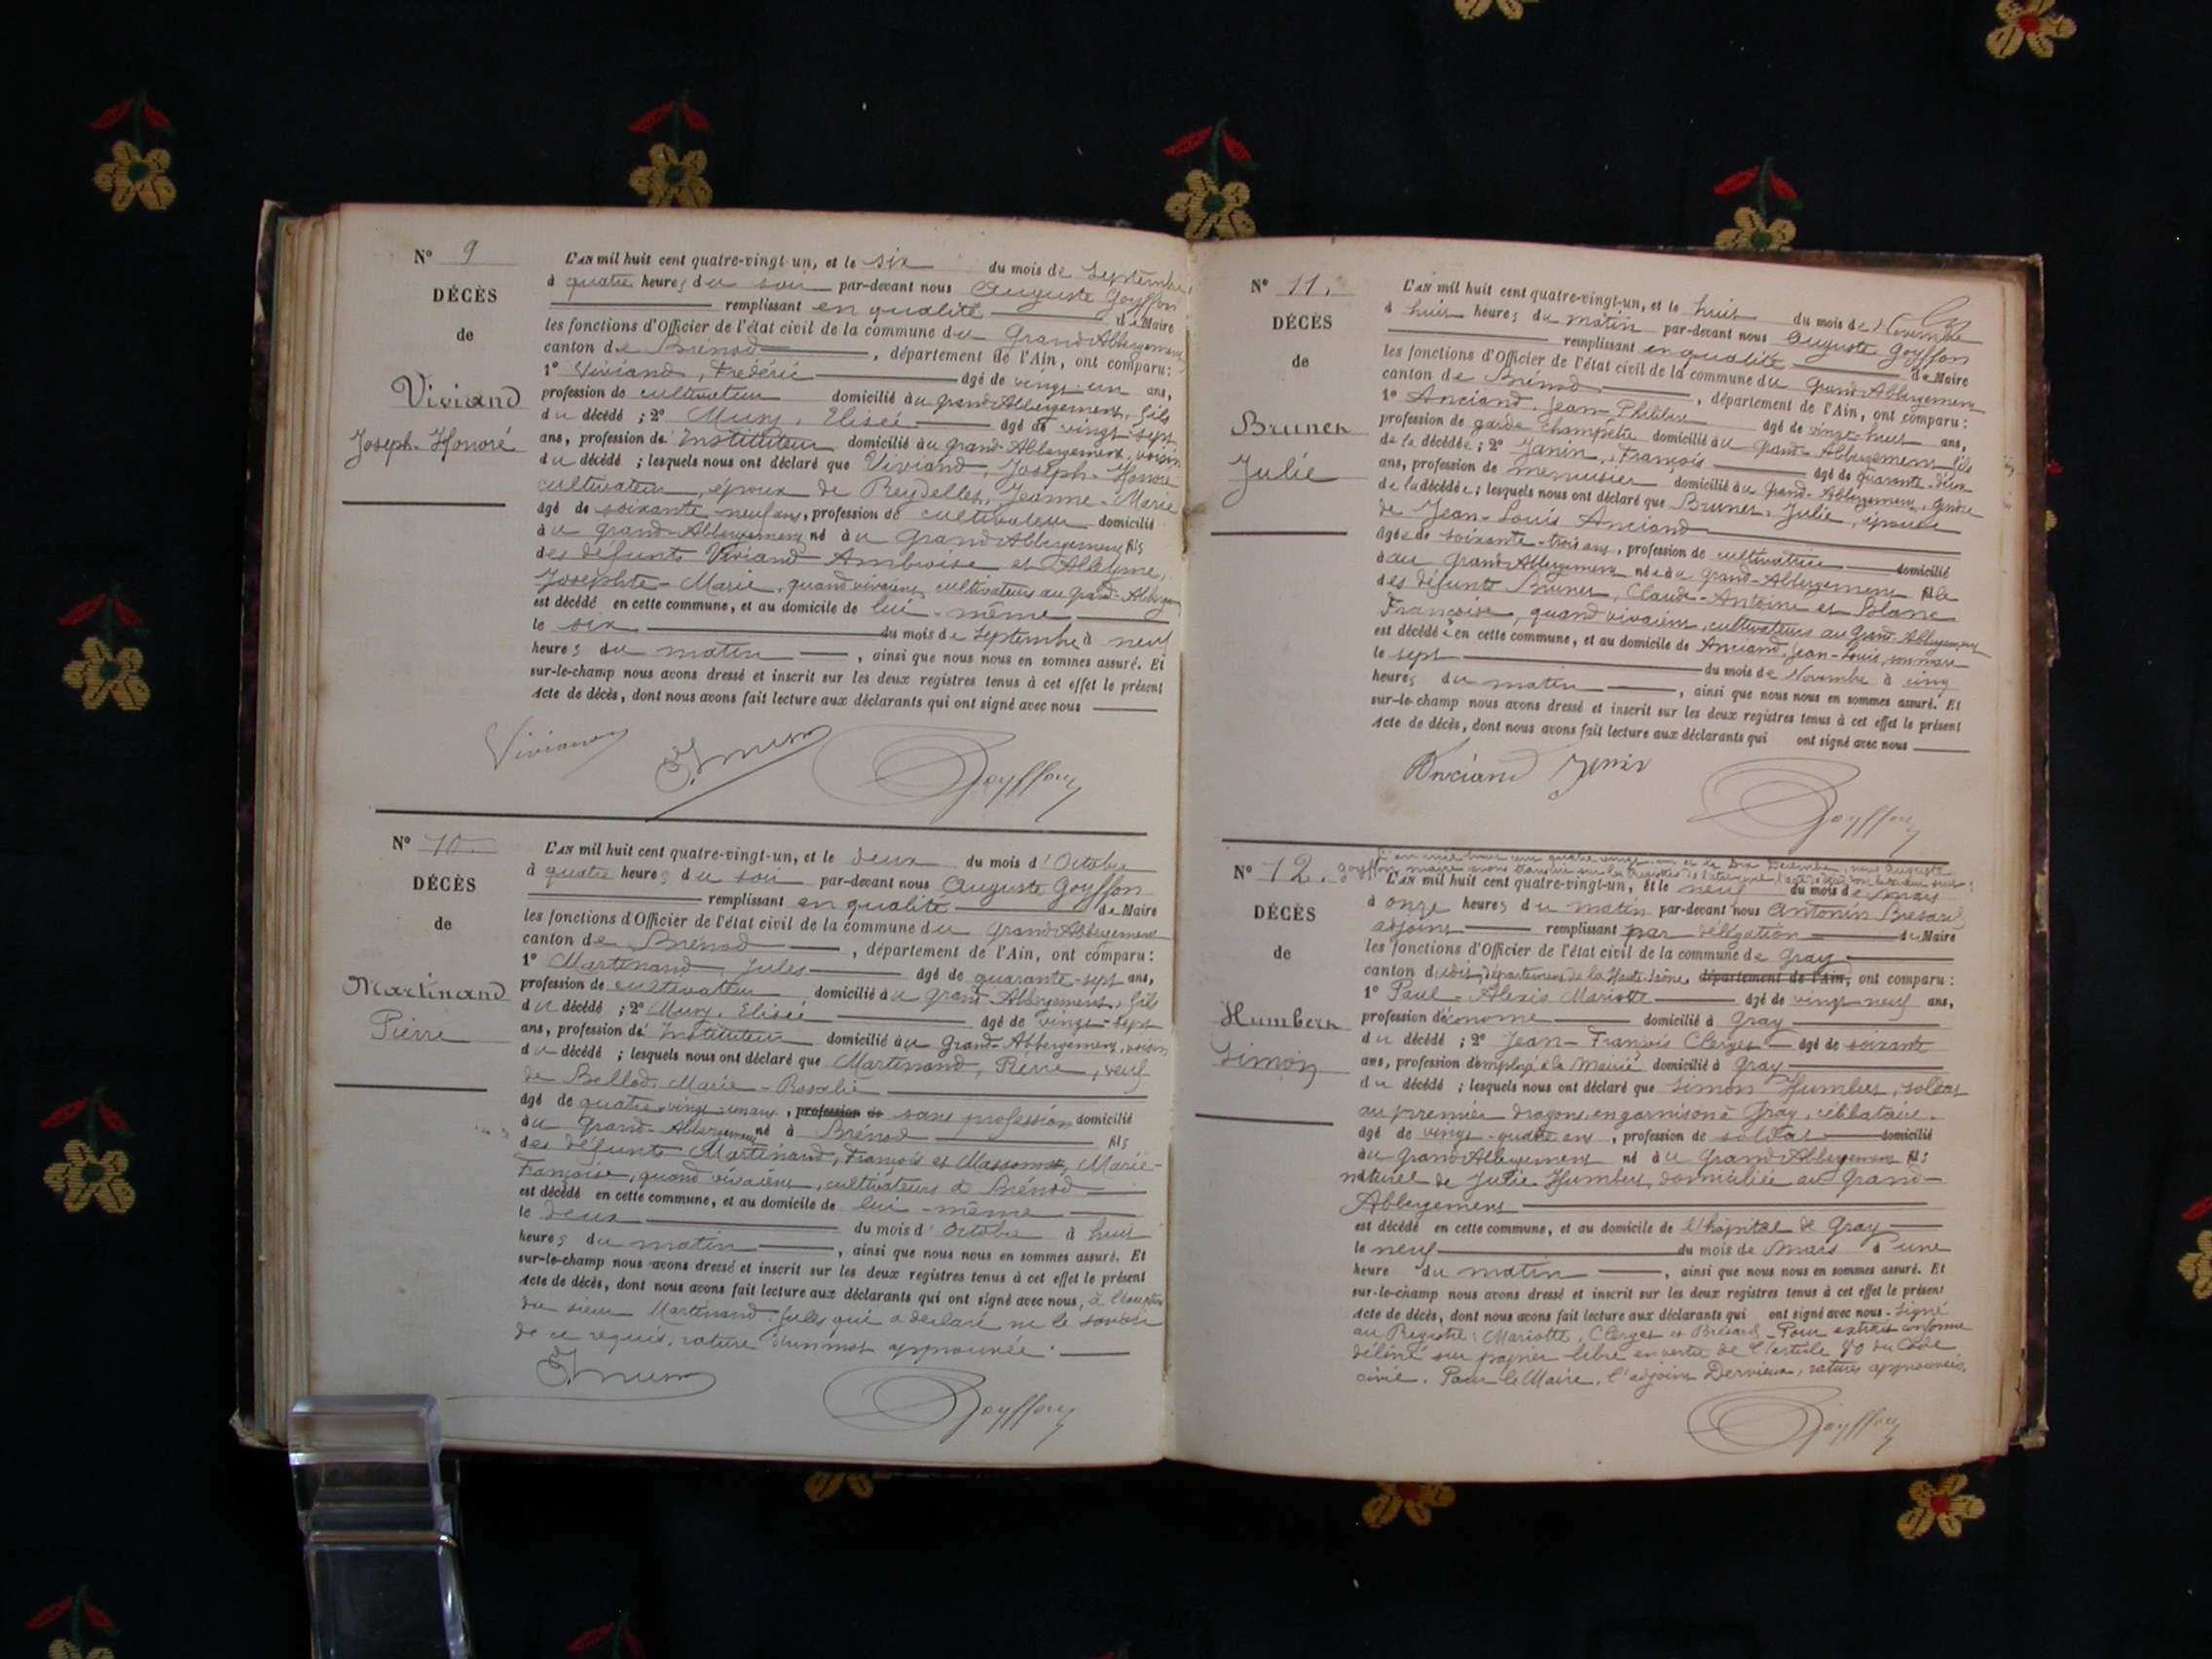 N° 9
DÉCÈS
de
Viviand
Joseph-Honoré
L'AN mil huit cent quatre-vingt-un, et le six du mois de Septembre
à quatre heures du soir par-devant nous Auguste Goyffon
remplissant en qualité de Maire
les fonctions d'Officier de l'état civil de la commune du Grand Abbergement
canton de Brénod, département de l'Ain, ont comparu :
1° Viviand, Frédéric âgé de vingt-un ans,
profession de cultivateur domicilié au grand Abbergement, fils
du décédé ; 2° Mury, Elisée âgé de vingt-sept
ans, profession de Instituteur domicilié au grand-Abbergement, voisin
du décédé ; lesquels nous ont déclaré que Viviand, Joseph-Honoré
cultivateur, époux de Reydellet, Jeanne-Marie
âgé de soixante-neuf ans, profession de cultivateur domicilié
au grand-Abbergement né au Grand Abbergement fils
des défunts Viviand Ambroise et Alleyme,
Josephte-Marie, quand vivaient cultivateurs au grand-Abbergemt
est décédé en cette commune, et au domicile de lui-même
le six du mois de Septembre à neuf
heures du matin, ainsi que nous nous en sommes assuré. Et
sur-le-champ nous avons dressé et inscrit sur les deux registres tenus à cet effet le présent
Acte de décès, dont nous avons fait lecture aux déclarants qui ont signé avec nous
Viviand Goyffon
N° 10
DÉCÈS
de
Martinand
Pierre
L'AN mil huit cent quatre-vingt-un, et le deux du mois d'Octobre
à quatre heures du soir par-devant nous Auguste Goyffon
remplissant en qualité de Maire
les fonctions d'Officier de l'état civil de la commune du Grand Abbergement
canton de Brénod, département de l'Ain, ont comparu :
1° Martinand, Jules âgé de quarante-sept ans,
profession de cultivateur domicilié au grand Abbergement, fils
du décédé ; 2° Mury, Elisée âgé de vingt-sept
ans, profession de Instituteur domicilié au Grand-Abbergement, voisin
du décédé ; lesquels nous ont déclaré que Martinand, Pierre, veuf
de Bellod, Marie-Rosalie
âgé de quatre-vingt-un ans, profession de sans profession domicilié
au Grand-Abbergement né à Brénod fils
des défunts Martinand, François et Massonnet, Marie-
Françoise, quand vivaient, cultivateurs à Brénod
est décédé en cette commune, et au domicile de lui-même
le deux du mois d'Octobre à huit
heures du matin, ainsi que nous nous en sommes assuré. Et
sur-le-champ nous avons dressé et inscrit sur les deux registres tenus à cet effet le présent
Acte de décès, dont nous avons fait lecture aux déclarants qui ont signé avec nous, à l'exception
du sieur Martinand Jules qui a déclaré ne le savoir
de ce requis, rature d'un mot approuvée.
Goyffon
N° 11.
DÉCÈS
de
Brunet
Julie
L'AN mil huit cent quatre-vingt-un, et le huit du mois de Novembre
à huit heures du matin par-devant nous Auguste Goyffon
remplissant en qualité de Maire
les fonctions d'Officier de l'état civil de la commune du Grand Abbergement
canton de Brénod, département de l'Ain, ont comparu :
1° Anciand, Jean-Philibert âgé de vingt-huit ans,
profession de garde champêtre domicilié au Grand-Abbergement fils
de la décédée ; 2° Janin, François âgé de quarante-deux
ans, profession de menuisier domicilié au Grand-Abbergement, gendre
de la décédée ; lesquels nous ont déclaré que Brunet, Julie, épouse
de Jean-Louis Anciand
âgée de soixante-trois ans, profession de cultivatrice domicilié
à au Grand Abbergement née au grand-Abbergement fille
des défunts Brunet, Claude-Antoine et Blanc
Françoise, quand vivaient, cultivateurs au Grand-Abbergement
est décédée en cette commune, et au domicile de Anciand, Jean-Louis, son mari
le sept du mois de Novembre à cinq
heures du matin, ainsi que nous nous en sommes assuré. Et
sur-le-champ nous avons dressé et inscrit sur les deux registres tenus à cet effet le présent
Acte de décès, dont nous avons fait lecture aux déclarants qui ont signé avec nous
Anciand Janin
Goyffon
N° 12.
DÉCÈS
de
Humbert
Simon
L'an mil huit cent quatre vingt-un et le dix Décembre, nous Auguste
Goyffon, maire avons transcrit sur les registres de l'état civil l'acte de décès
L'AN mil huit cent quatre-vingt-un, et le neuf du mois de mars
à onze heures du matin par-devant nous Antonin Bresard
adjoint remplissant par délégation du Maire
les fonctions d'Officier de l'état civil de la commune de Gray
canton dudit, département de la Haute-Saône, département de l'Ain, ont comparu :
1° Paul-Alexis Mariotte âgé de vingt-neuf ans,
profession d'économe domicilié à Gray
du décédé ; 2° Jean-François Clerget âgé de soixante
ans, profession d'employé à la Mairie domicilié à Gray
du décédé ; lesquels nous ont déclaré que Simon Humbert, soldat
au premier dragons, en garnison à Gray, célibataire.
âgé de vingt-quatre ans, profession de soldat domicilié
au Grand Abbergement né au Grand-Abbergement fils
naturel de Julie Humbert, domiciliée au Grand-
Abbergement
est décédé en cette commune, et au domicile de l'hôpital de Gray
le neuf du mois de Mars à une
heure du matin, ainsi que nous nous en sommes assuré. Et
sur-le-champ nous avons dressé et inscrit sur les deux registres tenus à cet effet le présent
Acte de décès, dont nous avons fait lecture aux déclarants qui ont signé avec nous - Signé
au Registre : Mariotte, Clerget et Bresard - Pour extrait conforme
délivré sur papier libre en vertu de l'article 80 du Code
civil. Pour le Maire, l'adjoint Dervieux, ratures approuvées.
Goyffon